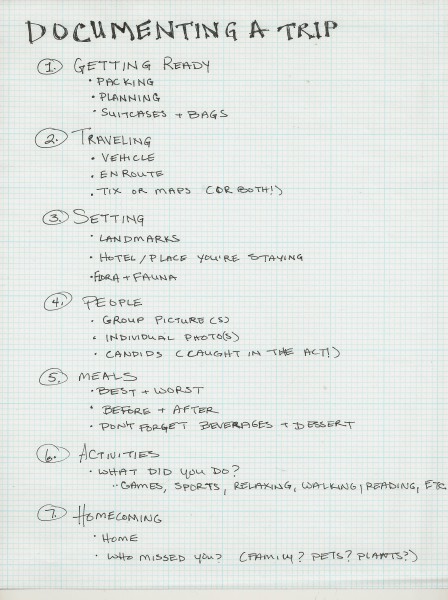 DOCUMENTING A TRIP
1. GETTING READY
• PACKING
• PLANNING
• SUITCASES + BAGS
2. TRAVELING
• VEHICLE
• EN ROUTE
• TIX OR MAPS (OR BOTH!)
3. SETTING
• LANDMARKS
• HOTEL/PLACE YOU'RE STAYING
• FLORA + FAUNA
4. PEOPLE
• GROUP PICTURE(S)
• INDIVIDUAL PHOTO(S)
• CANDIDS (CAUGHT IN THE ACT!)
5. MEALS
• BEST + WORST
• BEFORE + AFTER
• DON'T FORGET BEVERAGES + DESSERT
6. ACTIVITIES
• WHAT DID YOU DO?
·· GAMES, SPORTS, RELAXING, WALKING, READING, ETC
7. HOMECOMING
• HOME
• WHO MISSED YOU? (FAMILY? PETS? PLANTS?)